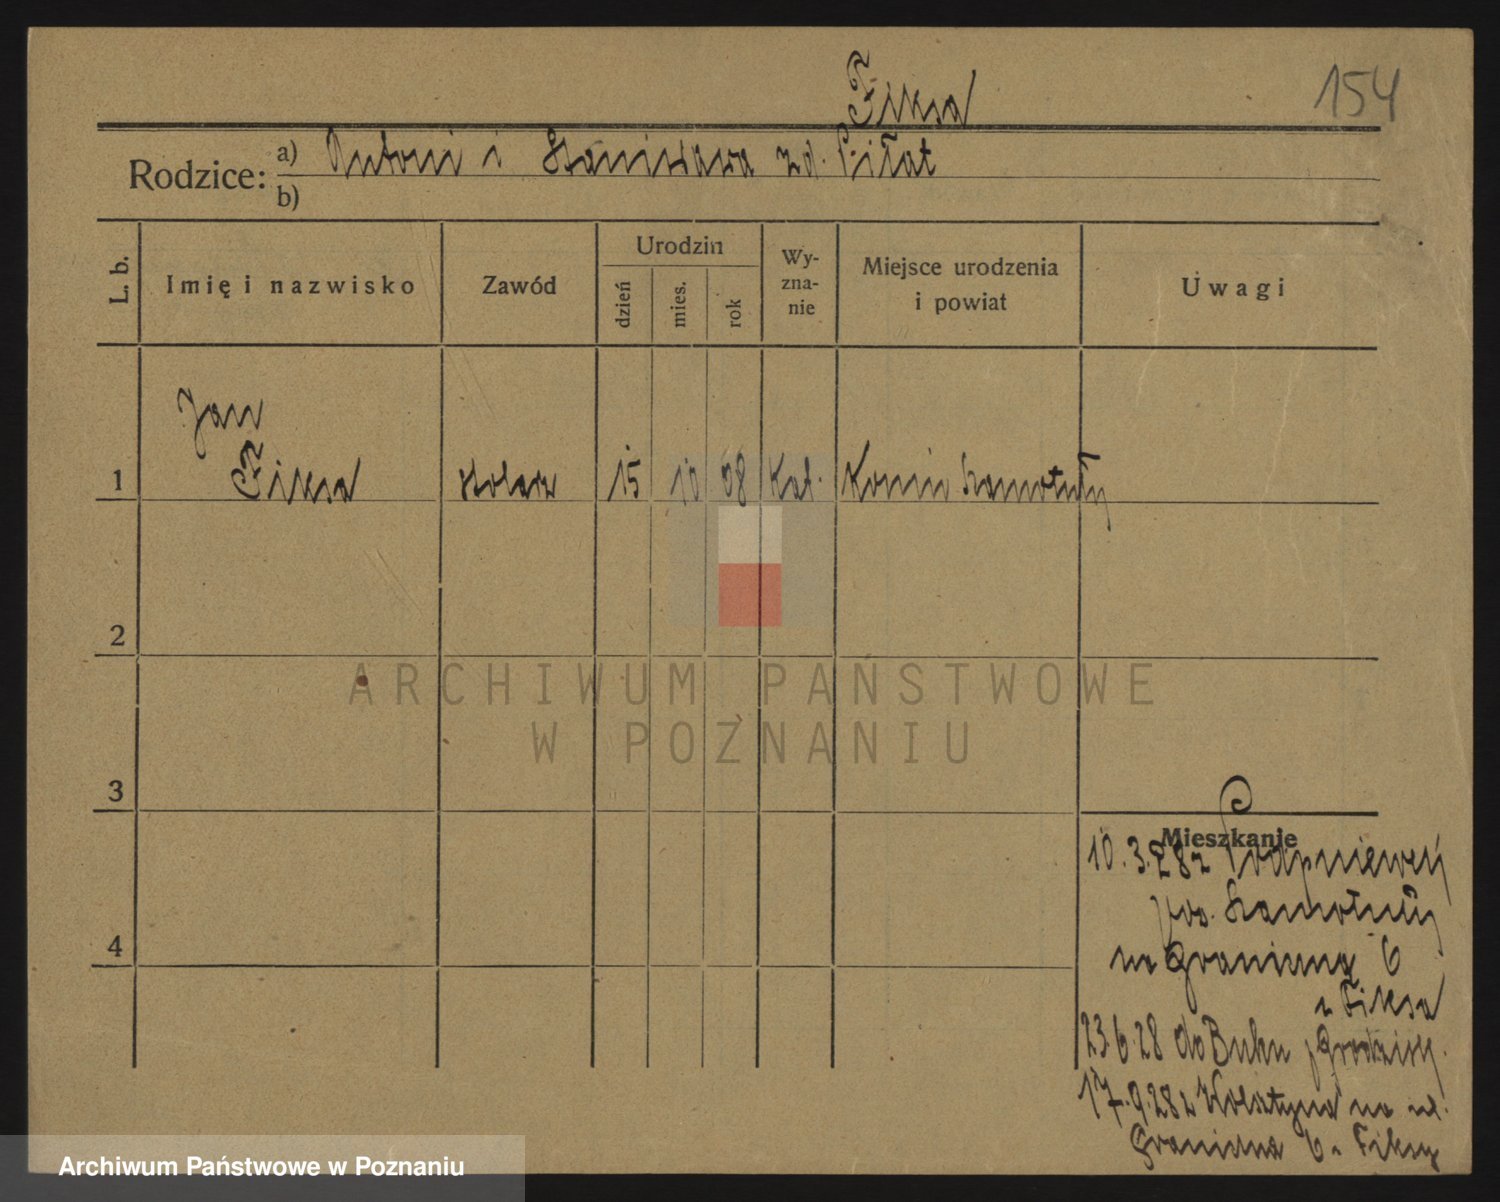 Fiksa
154
Rodzice: a) Antoni i Stanisława zd. Piłat
b)
L. b.
Imię i nazwisko
Zawód
Urodzin
dzień
mies.
rok
Wy-
zna-
nie
Miejsce urodzenia
i powiat
Uwagi
Jan
1 Fiksa stolarz 15 10 08 Kat. Konin Szamotuły
2
ARCHIWUM PAŃSTWOWE
W POZNANIU
3
Mieszkanie
10.3.28 z Podpniewek
pow. Szamotuły
4
na Graniczną 6
u Fiksa
23.6.28 do Buku p. Grodzisk.
17.9.28 z na ul.
Graniczna 6 u Fiksy
Archiwum Państwowe w Poznaniu